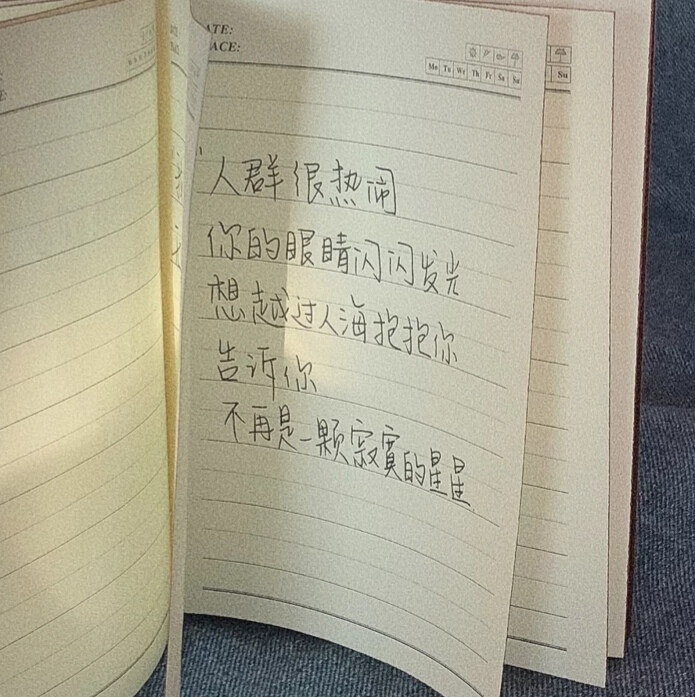 ATE:
ACE:
Mo Tu We Th Fr Sa Su
Su
人群很热闹
你的眼睛闪闪发光
想越过人海抱抱你
告诉你
不再是一颗寂寞的星星